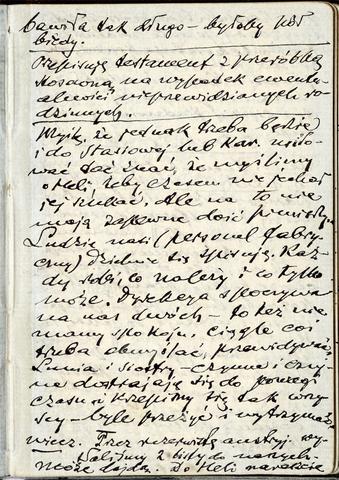 bawiła tak długo – byłoby pół
biedy.
Przepisuję testament z przeróbką
na wypadek ewentu-
alności nieprzewidzianych ro-
dzinnych.
Myślę, że jednak trzeba będzie
i do Stasiowej lub Kar. napi-
wać dać znać, że myślimy
o Heli, żeby czasem nie jechał
jej szukać. Ale na to nie
mają zapewne dość pieniędzy.
Ludzie nasi (personel fabry-
czny) dzielnie się spisują. Każ-
dy robi, co należy i co tylko
może. Dyrekcja spoczywa
na nas dwóch – to też nie
mamy spokoju, ciągle coś
trzeba obmyślać, przewidywać.
Lunia i siostry – czynne i czuj-
ne dostrajają się do powagi
czasu i krzepimy się tak wszy-
scy – byle przeżyć i wytrzymać
wiecz. Przez rezerwistę austryj. wy-
słaliśmy 2 listy do naszych –
może dojdą. Do Heli nareszcie